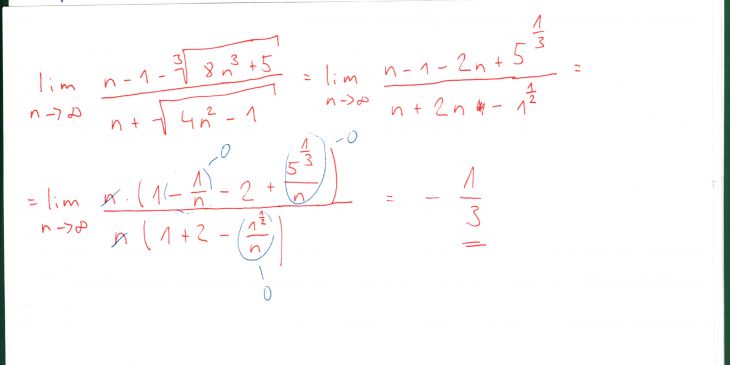 lim n→∞ (n - 1 - ∛(8n³ + 5)) / (n + √(4n² - 1)) = lim n→∞ (n - 1 - 2n + 5^(1/3)) / (n + 2n - 1^(1/2)) =
= lim n→∞ (n · (1 - 1/n - 2 + 5^(1/3)/n)) / (n (1 + 2 - 1^(1/2)/n)) = - 1/3
→0 →0
→0